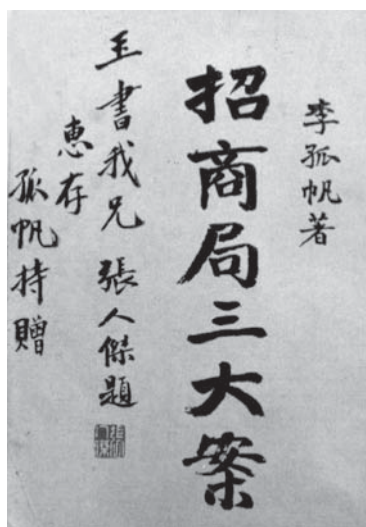 李孤帆著
招商局三大案
張人傑題
玉書我兄
惠存
孤帆持贈